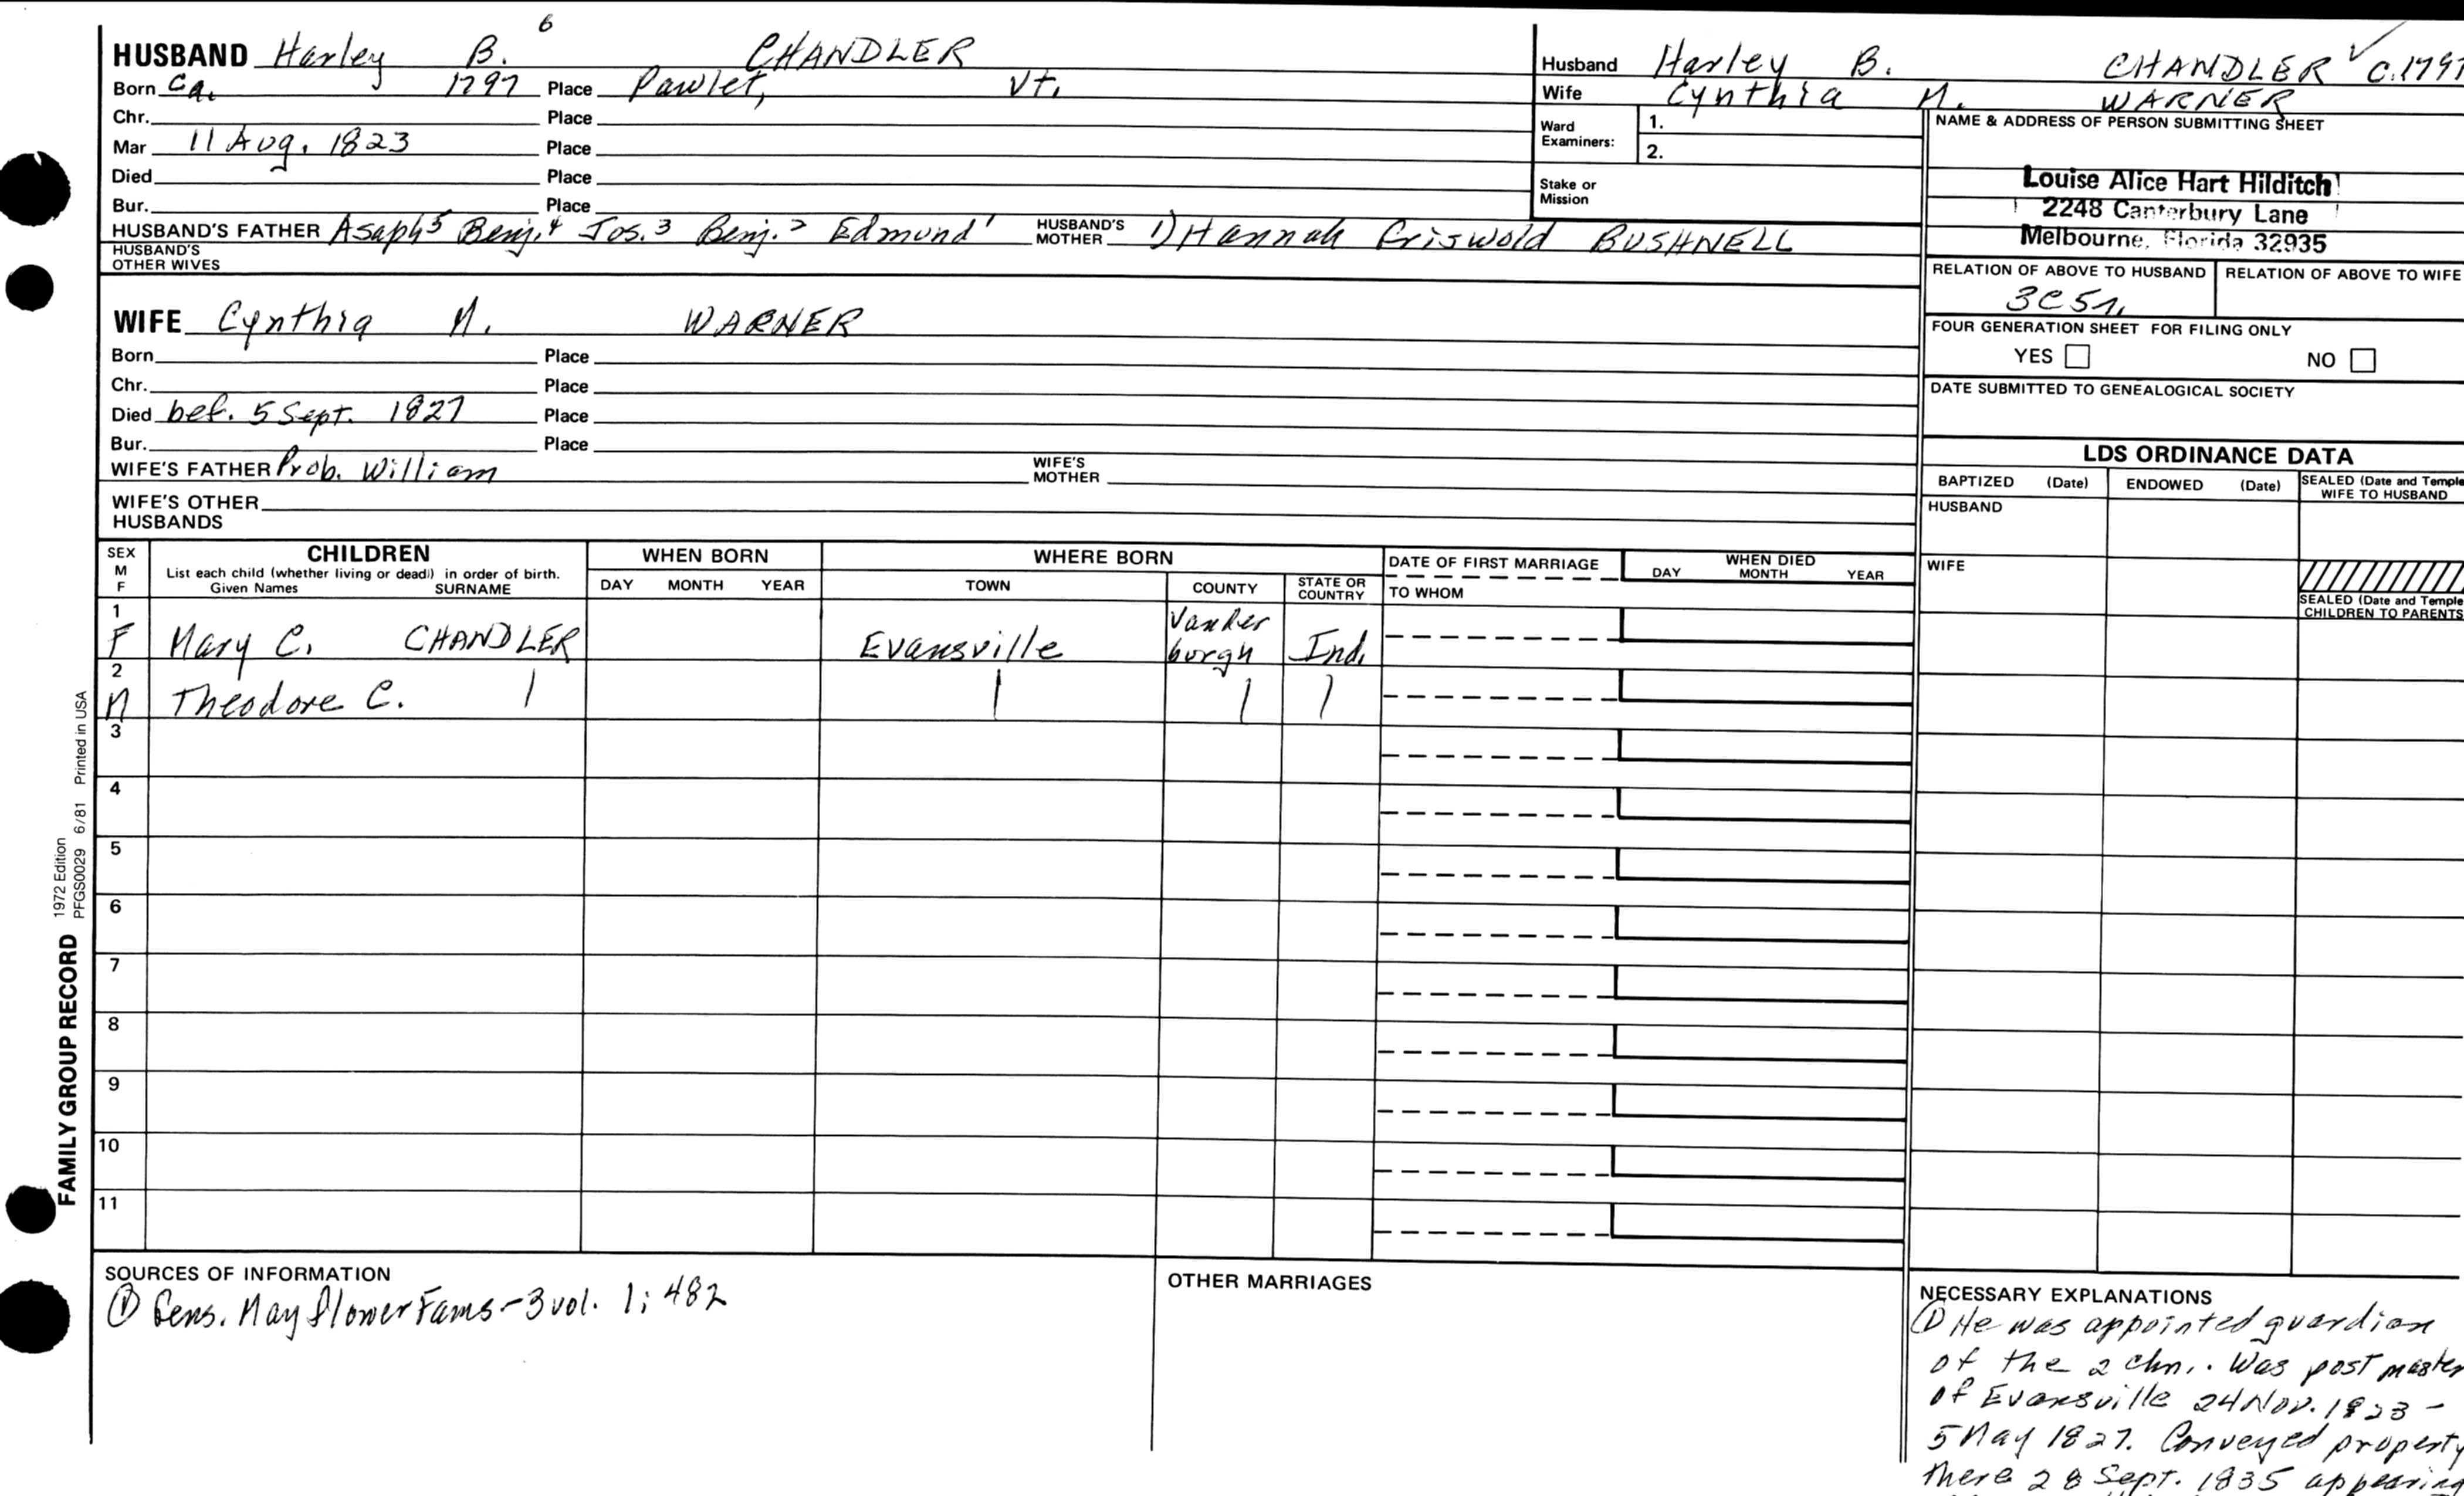 HUSBAND Harley B. 6 CHANDLER
Born Ca. 1797 Place Pawlet, Vt.
Chr. Place
Mar 11 Aug. 1823 Place
Died Place
Bur. Place
HUSBAND'S FATHER Asaph5 Benj.4 Jos.3 Benj.2 Edmund1 HUSBAND'S MOTHER 1) Hannah Griswold BUSHNELL
HUSBAND'S OTHER WIVES
WIFE Cynthia M. WARNER
Born Place
Chr. Place
Died bef. 5 Sept. 1827 Place
Bur. Place
WIFE'S FATHER Prob. William WIFE'S MOTHER
WIFE'S OTHER HUSBANDS
Husband Harley B. CHANDLER ✓ c.1797
Wife Cynthia M. WARNER
Ward Examiners: 1.
2.
Stake or Mission
NAME & ADDRESS OF PERSON SUBMITTING SHEET
Louise Alice Hart Hilditch
2248 Canterbury Lane
Melbourne, Florida 32935
RELATION OF ABOVE TO HUSBAND RELATION OF ABOVE TO WIFE
3C5r.
FOUR GENERATION SHEET FOR FILING ONLY
YES NO
DATE SUBMITTED TO GENEALOGICAL SOCIETY
LDS ORDINANCE DATA
BAPTIZED (Date) ENDOWED (Date) SEALED (Date and Temple WIFE TO HUSBAND
HUSBAND
WIFE
SEALED (Date and Temple CHILDREN TO PARENTS
SEX M F CHILDREN WHEN BORN WHERE BORN DATE OF FIRST MARRIAGE WHEN DIED
List each child (whether living or dead) in order of birth.
Given Names SURNAME DAY MONTH YEAR TOWN COUNTY STATE OR COUNTRY TO WHOM DAY MONTH YEAR
1 F Mary C. CHANDLER Evansville Vander burgh Ind.
2 M Theodore C. | | | |
3
4
5
6
7
8
9
10
11
FAMILY GROUP RECORD 1972 Edition
PFGS0029 6/81 Printed in USA
SOURCES OF INFORMATION
① Gens. Mayflower Fams-3vol. 1; 482
OTHER MARRIAGES
NECESSARY EXPLANATIONS
① He was appointed guardian
of the 2 chn.. Was post master
of Evansville 24 Nov. 1823 -
5 May 1827. Conveyed property
there 28 Sept. 1835 appearing